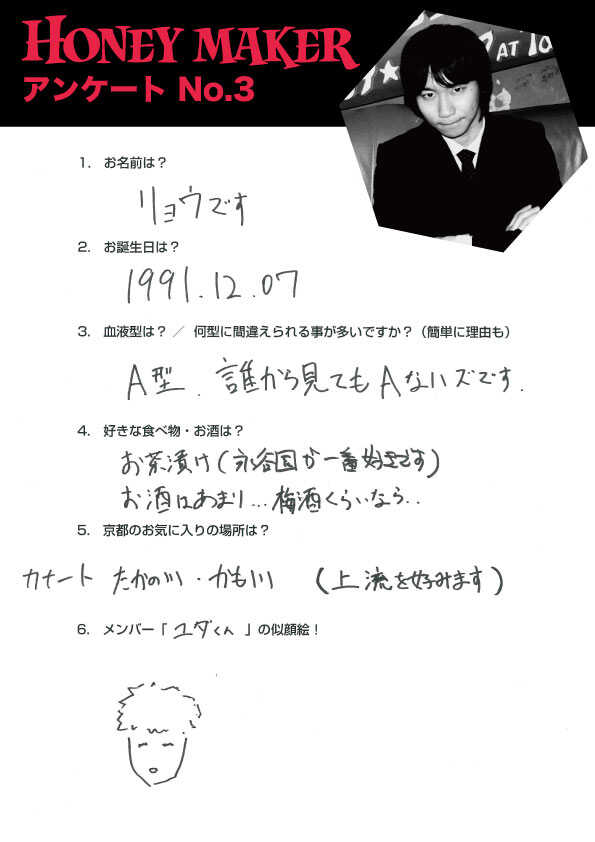 HONEY MAKER
アンケート No.3
AT To
1. お名前は？
リョウです
2. お誕生日は？
1991.12.07
3. 血液型は？ ／ 何型に間違えられる事が多いですか？（簡単に理由も）
A型. 誰から見てもAなハズです.
4. 好きな食べ物・お酒は？
お茶漬け(永谷園が一番好きです)
お酒はあまり...梅酒くらいなら..
5. 京都のお気に入りの場所は？
カナート たかの川・かも川 (上流を好みます)
6. メンバー「 ユダくん 」の似顔絵！